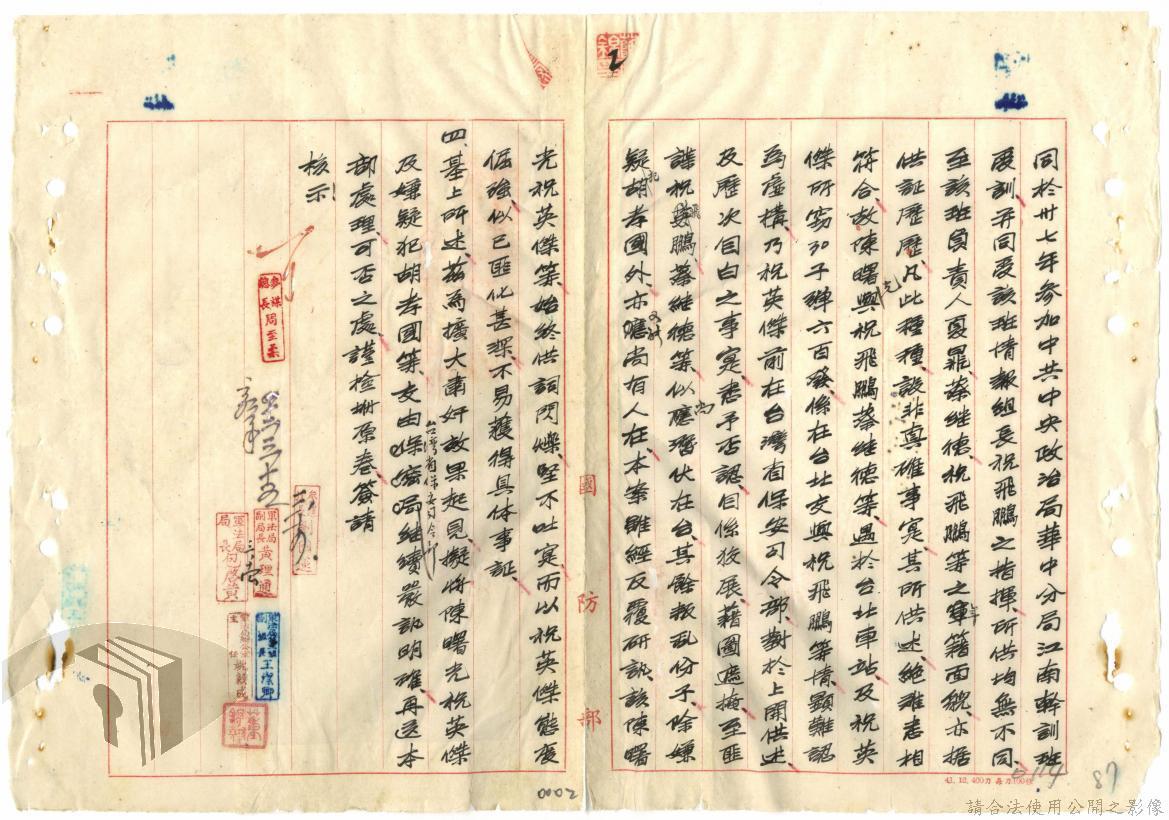 同於卅七年参加中共中央政治局華中分局江南幹訓班
受訓、并同受該班情報組長祝飛鵬之指揮、所供均無不同、
至該班負責人夏鼎、蔡继德、祝飛鵬等之年籍面貌、亦据
供証歷歷、凡此種種、設非真確事实、其所供述絕难悉相
符合、故陳曙光與祝飛鵬蔡继德等、遇於台北車站、及祝英
傑所窃30子弹六百發、係在台北交與祝飛鵬等情、顯難認
為虛構、乃祝英傑前在台灣省保安司令部、對於上開供述、
及歷次自白之事寔、悉予否認、自係狡展、藉圖遮掩、至匪
諜祝飛鵬、蔡继德等、似尚潛伏在台、其餘叛乱份子、除嫌
疑犯胡孝國外、亦或尚有人在、本案雖經反覆研訊、該陳曙
光祝英傑等、始終供詞閃爍、堅不吐寔、而以祝英傑態度
倔強、似已匪化甚深、不易獲得具体事証、
四、基上所述、茲為擴大肅奸效果起見、擬將陳曙光祝英傑
及嫌疑犯胡孝國等、交由台灣省保安司令部继續嚴訊明確、再送本
部處理、可否之處、謹檢附原卷簽請
核示
參謀總長周至柔
軍法局副局長黃理通
軍法局局長
副組長王璞卿
主任
國防部
43.12.400刀
0114
87
0002
2
請合法使用公開之影像